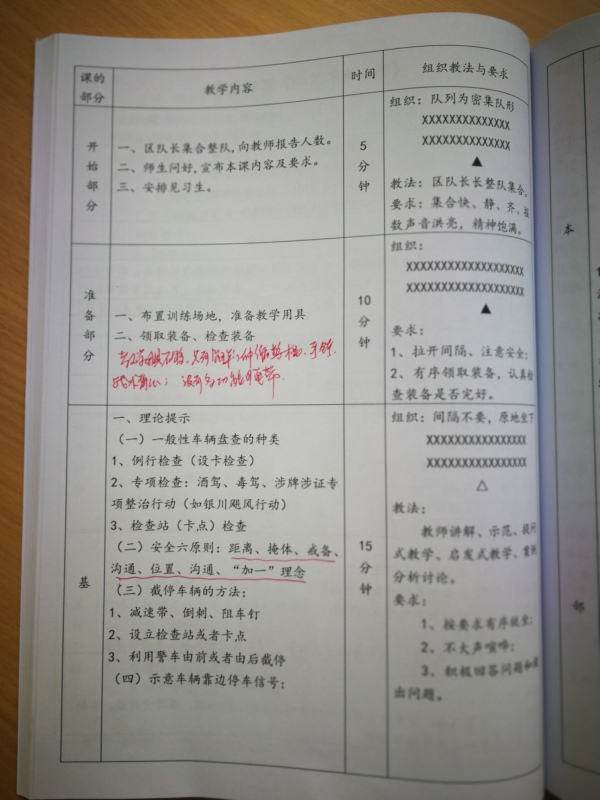 课的
部分
教学内容
时间
组织教法与要求
开
始
部
分
一、区队长集合整队,向教师报告人数。
二、师生问好,宣布本课内容及要求。
三、安排见习生。
5
分
钟
组织：队列为密集队形
XXXXXXXXXXXXXX
XXXXXXXXXXXXXX
▲
教法：区队长长整队集合,
要求：集合快、静、齐、报
数声音洪亮，精神饱满。
准
备
部
分
一、布置训练场地，准备教学用具
二、领取装备、检查装备
10
分
钟
组织：
XXXXXXXXXXXXXXXXXXX
XXXXXXXXXXXXXXXXXXX
▲
要求：
1、拉开间隔、注意安全;
2、有序领取装备，认真检
查装备是否完好。
基
一、理论提示
（一）一般性车辆盘查的种类
1、例行检查（设卡检查）
2、专项检查：酒驾、毒驾、涉牌涉证专
项整治行动（如银川飓风行动）
3、检查站（卡点）检查
（二）安全六原则：距离、掩体、戒备、
沟通、位置、沟通、“加一”理念
（三）截停车辆的方法：
1、减速带、倒刺、阻车钉
2、设立检查站或者卡点
3、利用警车由前或者由后截停
（四）示意车辆靠边停车信号：
15
分
钟
组织：间隔不要，原地坐下
XXXXXXXXXXXXXXXX
XXXXXXXXXXXXXXXX
△
教法：
教师讲解、示范、提问
式教学、启发式教学、案例
分析讨论。
要求：
1、按要求有序就坐;
2、不大声喧哗;
3、积极回答问题和提
出问题。
本
部